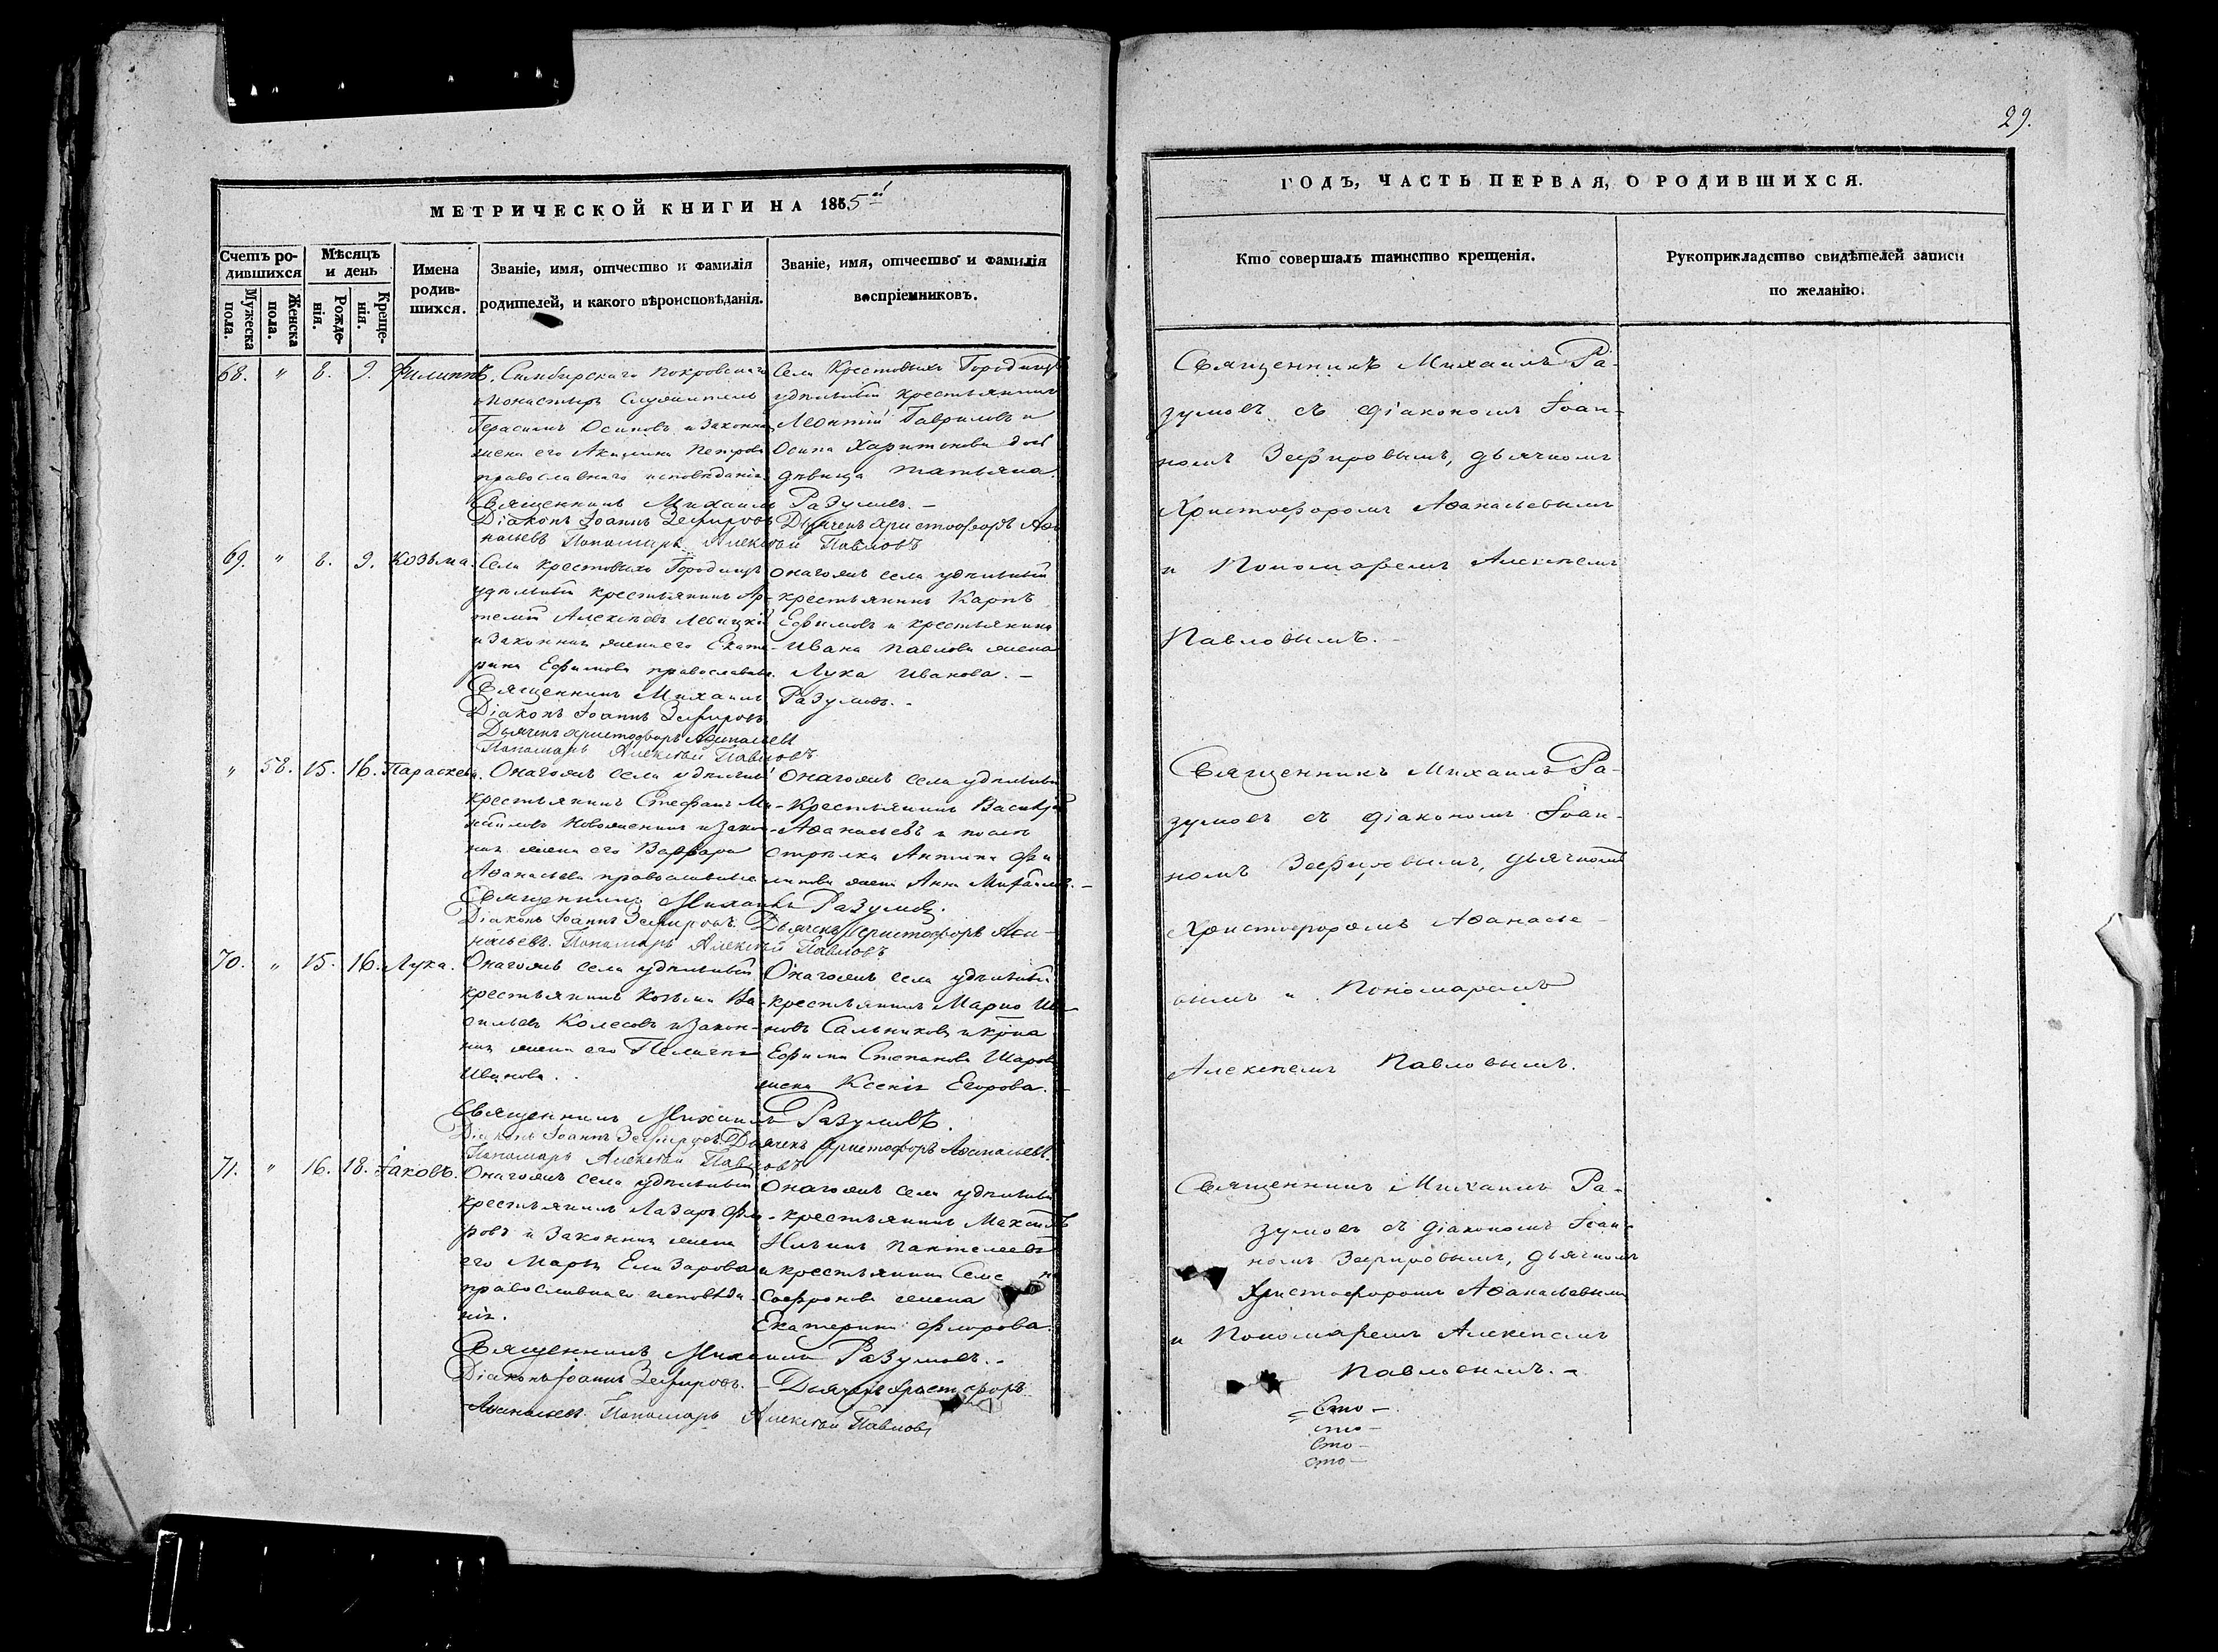 29.
МЕТРИЧЕСКОЙ КНИГИ НА 1855й
Счетъ родившихся
Мужеска пола.
Женска пола.
Мѣсяцъ и день
Рожденія.
Крещенія.
Имена родившихся.
Званіе, имя, отчество и фамилія
родителей, и какого вѣроисповѣданія.
Званіе, имя, отчество и фамилія
воспріемниковъ.
68. " 8. 9. Филиппъ. Симбирскаго Покровскаго
монастыря служитель
Герасимъ Осиповъ и законная
жена его Акилина Петрова
православнаго исповѣданія
Села Крестовыхъ Городищъ
удѣльный крестьянинъ
Леонтій Гавриловъ и
Осипа Харитонова дочь
дѣвица Татьяна.
Священникъ Михаилъ Разумовъ. -
Діаконъ Іоаннъ Зефировъ Дьячекъ Христофоръ Афа-
насьевъ Пономарь Алексѣй Павловъ
69. " 8. 9. Козьма. Села Крестовыхъ Городищъ
удѣльный крестьянинъ Ар-
темій Алексѣевъ Левицкій
и законная жена его Екате-
рина Ефимова православные.
Онагожъ села удѣльный
крестьянинъ Карпъ
Ефимовъ и крестьянина
Ивана Павлова жена
Лукія Иванова. -
Священникъ Михаилъ Разумовъ. -
Діаконъ Іоаннъ Зефировъ
Дьячекъ Христофоръ Афанасьевъ
Пономарь Алексѣй Павловъ
" 58. 15. 16. Параскева. Онагожъ села удѣльный
крестьянинъ Стефанъ Ми-
хайловъ Новоженинъ и закон-
ная жена его Варвара
Афанасьева православные
Онагожъ села удѣльный
крестьянинъ Василій
Афанасьевъ и
стрѣлка Антипа Фи
липова жена Анна Михайлова. -
Священникъ Михаилъ Разумовъ.
Діаконъ Іоаннъ Зефировъ. Дьячекъ Христофоръ Афа-
насьевъ. Пономарь Алексѣй Павловъ
70. " 15. 16. Лука. Онагожъ села удѣльный
крестьянинъ Козьма Ва-
сильевъ Колесовъ и закон-
ная жена его Пелагея
Иванова.
Онагожъ села удѣльный
крестьянинъ Марко Ива-
новъ Сальниковъ и крна
Ефима Степанова Шарова
жена Ксенія Егорова. -
Священникъ Михаилъ Разумовъ.
Діаконъ Іоаннъ Зефировъ. Дьячекъ Христофоръ Афанасьевъ.
Пономарь Алексѣй Павловъ
71. " 16. 18. Іаковъ. Онагожъ села удѣльный
крестьянинъ Лазарь Фло-
ровъ и законная жена
его Марѳа Елизарова
православнаго исповѣда-
нія.
Онагожъ села удѣльный
крестьянинъ Максимъ
Ильинъ Пантелеевъ
и крестьянина Семена
Софронова жена
Екатерина Флорова.
Священникъ Михаилъ Разумовъ. -
Діаконъ Іоаннъ Зефировъ. - Дьячекъ Христофоръ
Афанасьевъ. Пономарь Алексѣй Павловъ
ГОДЪ, ЧАСТЬ ПЕРВАЯ, О РОДИВШИХСЯ.
Кто совершалъ таинство крещенія.
Рукоприкладство свидѣтелей записи
по желанію.
Священникъ Михаилъ Ра-
зумовъ съ діакономъ Іоан-
номъ Зефировымъ, дьячкомъ
Христофоромъ Афанасьевымъ
и Пономаремъ Алексѣемъ
Павловымъ. -
Священникъ Михаилъ Ра-
зумовъ съ діакономъ Іоан-
номъ Зефировымъ, дьячкомъ
Христофоромъ Афанасье-
вымъ и Пономаремъ
Алексѣемъ Павловымъ.
Священникъ Михаилъ Ра-
зумовъ съ діакономъ Іоан-
номъ Зефировымъ, дьячкомъ
Христофоромъ Афанасьевымъ
и Пономаремъ Алексѣемъ
Павловымъ. -